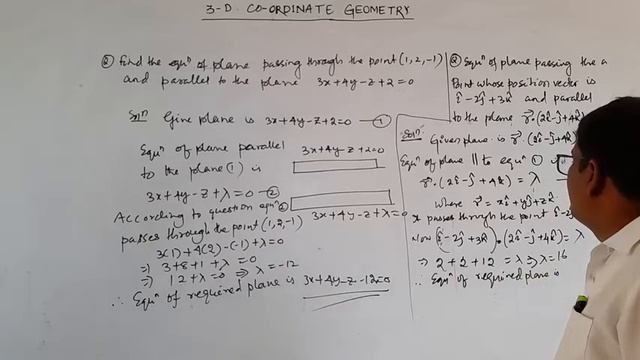 3-D. CO-ORDINATE GEOMETRY
② find the equⁿ of plane passing through the point (1,2,-1)
and parallel to the plane 3x+4y-z+2=0
Solⁿ Give plane is 3x+4y-z+2=0 —①
Equⁿ of plane parallel
to the plane (1) is
3x+4y-z+2=0
3x+4y-z+λ=0 —②
3x+4y-z+λ=0
According to question equⁿ ②
passes through the point (1,2,-1)
3(1)+4(2)-(-1)+λ=0
⇒ 3+8+1+λ=0
⇒ 12+λ=0 ⇒ λ=-12
∴ Equⁿ of required plane is 3x+4y-z-12=0
② Equⁿ of plane passing the a
Point whose position vector is
î-2ĵ+3k̂ and parallel
to the plane r⃗.(2î-ĵ+4k̂)
Solⁿ Given plane is r⃗.(2î-ĵ+4k̂)
Equⁿ of plane || to equⁿ ①
r⃗.(2î-ĵ+4k̂) = λ
where r⃗ = xî+yĵ+zk̂
passes through the point î-2ĵ
Now (î-2ĵ+3k̂).(2î-ĵ+4k̂)=λ
⇒ 2+2+12 = λ ⇒ λ=16
∴ Equⁿ of required plane is